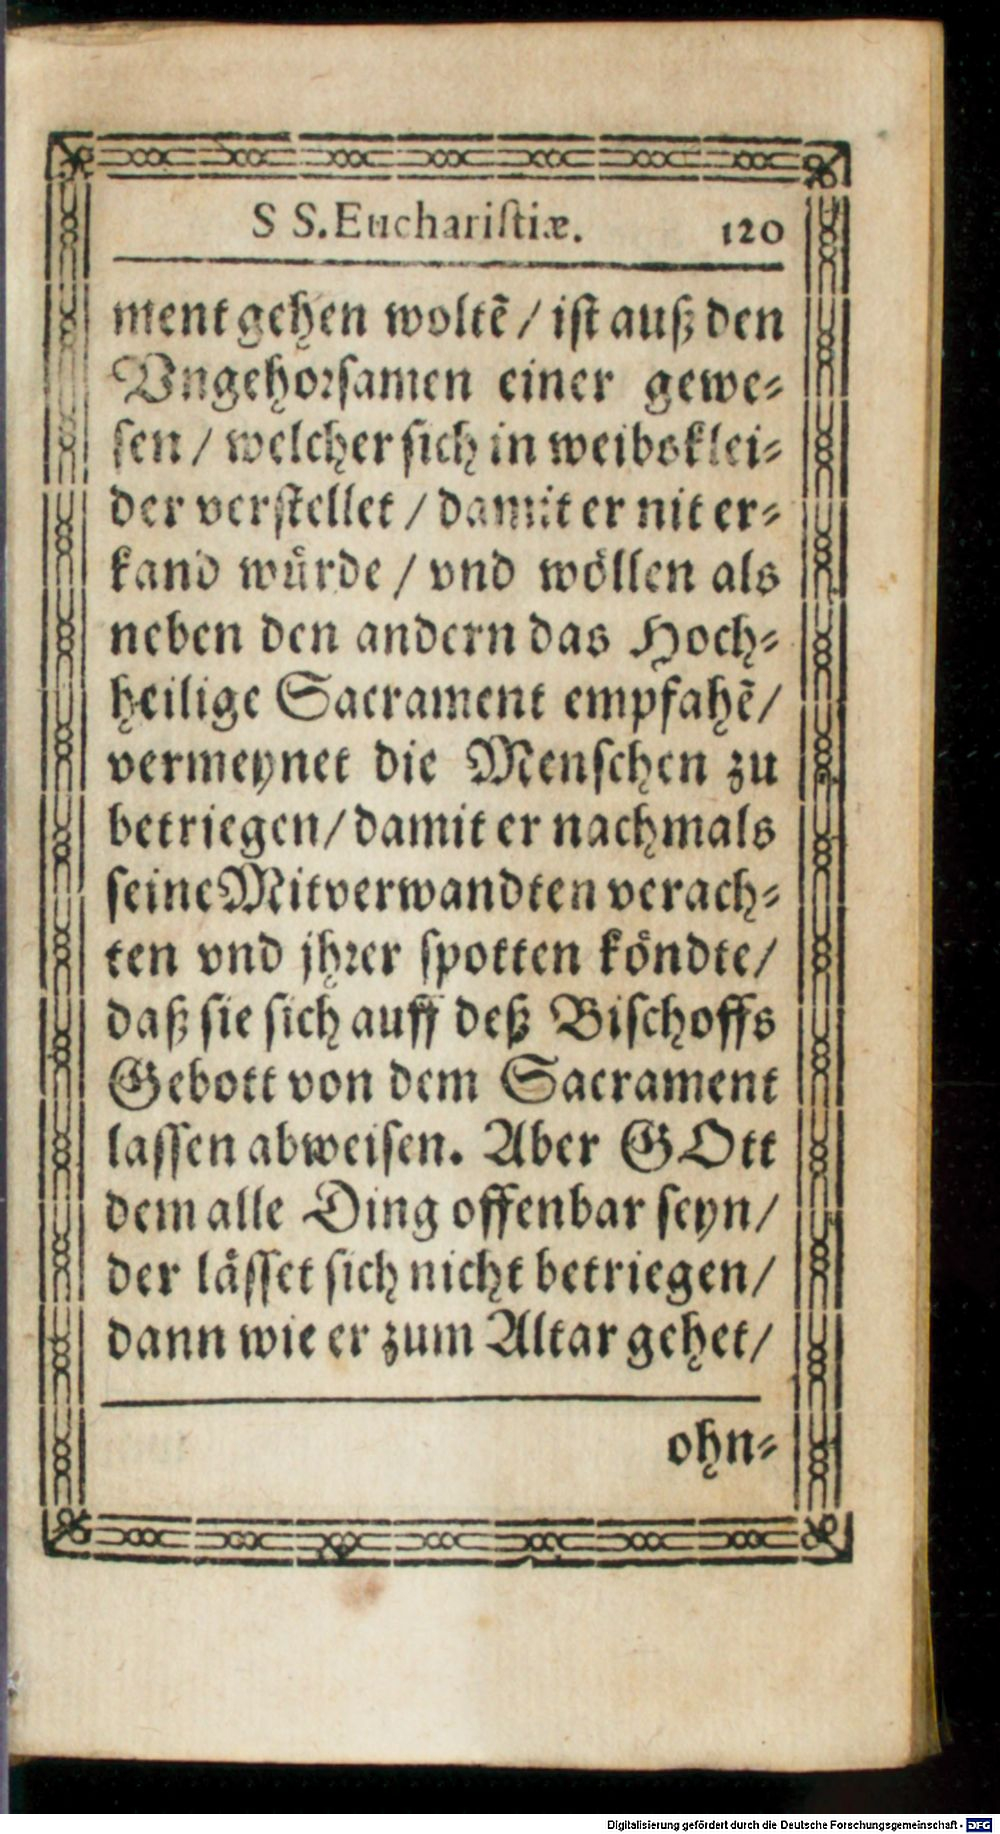 S S. Eucharistiæ. 120
ment gehen woltẽ / ist auß den
Vngehorsamen einer gewe-
sen / welcher sich in weibsklei-
der verstellet / damit er nit er-
kand wuͤrde / vnd woͤllen als
neben den andern das Hoch-
heilige Sacrament empfahẽ /
vermeynet die Menschen zu
betriegen / damit er nachmals
seine Mitverwandten verach-
ten vnd jhrer spotten koͤndte /
daß sie sich auff deß Bischoffs
Gebott von dem Sacrament
lassen abweisen. Aber GOtt
dem alle Ding offenbar seyn /
der laͤsset sich nicht betriegen /
dann wie er zum Altar gehet /
ohn-
Digitalisierung gefördert durch die Deutsche Forschungsgemeinschaft - DFG